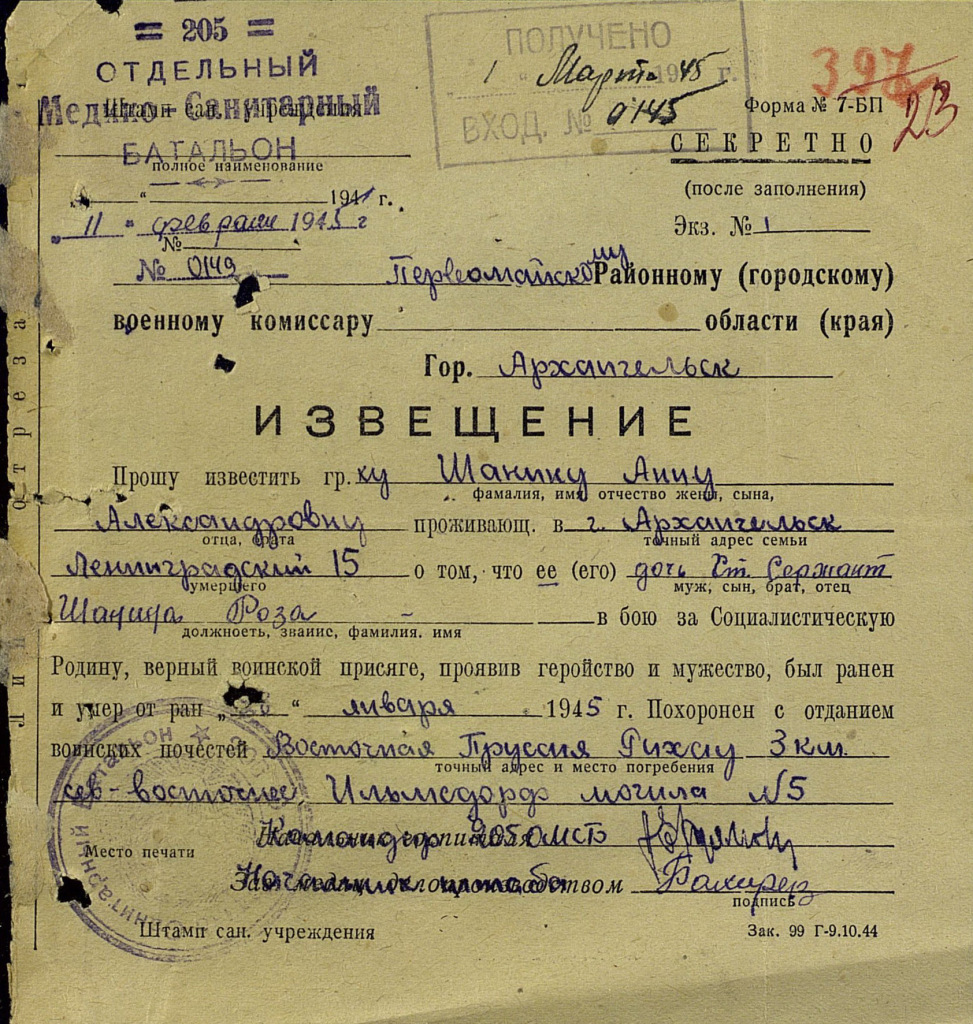 = 205 =
ОТДЕЛЬНЫЙ
Медико-Санитарный
Штамп сан. учреждения
БАТАЛЬОН
полное наименование
194 г.
„11“ февраля 1945 г
№
№ 0149
ПОЛУЧЕНО
1 Марта 45 г.
ВХОД. № 0145
397
23
Форма № 7-БП
СЕКРЕТНО
(после заполнения)
Экз. № 1
Первомайскому Районному (городскому)
военному комиссару области (края)
Гор. Архангельск
ИЗВЕЩЕНИЕ
Прошу известить гр. ку Шанину Анну
фамилия, имя отчество жены, сына,
Александровну проживающ. в г. Архангельск
отца, брата точный адрес семьи
Ленинградский 15 о том, что ее (его) дочь Ст. Сержант
умершего муж, сын, брат, отец
Шанина Роза – в бою за Социалистическую
должность, звание, фамилия. имя
Родину, верный воинской присяге, проявив геройство и мужество, был ранен
и умер от ран „28“ января 1945 г. Похоронен с отданием
воинских почестей Восточная Пруссия Рихау 3 км.
точный адрес и место погребения
сев-восточнее. Ильмсдорф могила N5
Командир 205 ОМСБ
Место печати
Начальник штаба
Зав. делопроизводством
подпись
Штамп сан. учреждения
Зак. 99 Г-9.10.44
Линия отреза